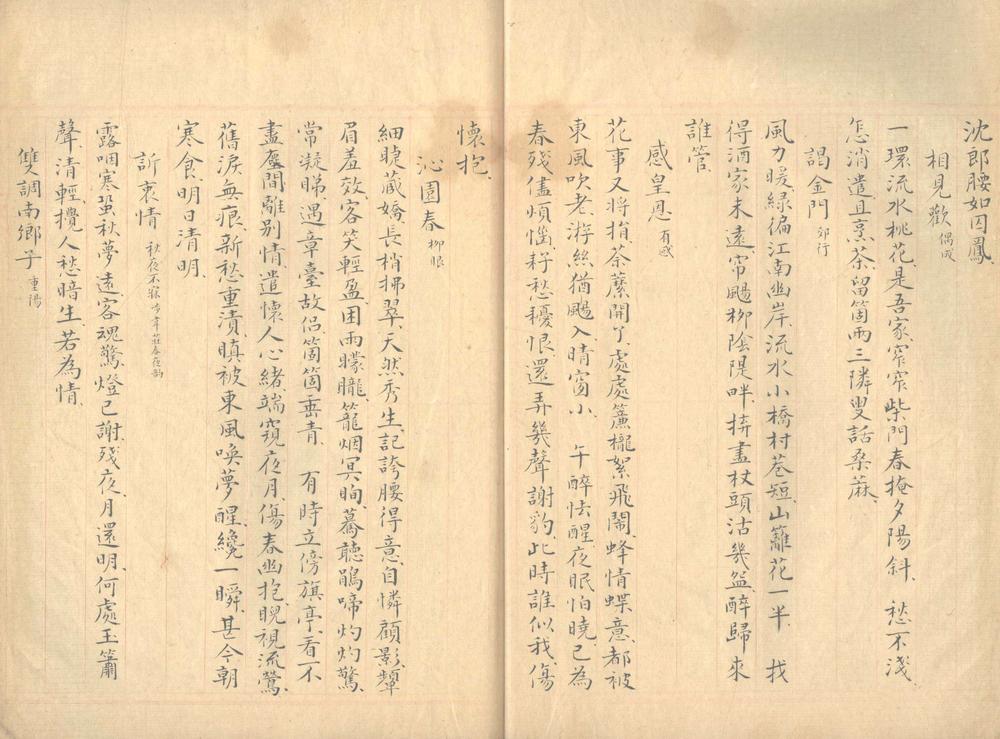 沈郎腰如囚鳳、
相見歡 偶成
一環流水桃花、是吾家、窄窄柴門春掩夕陽斜、 愁不淺、
怎消遣、且烹茶、留箇兩三隣叟話桑蔴、
謁金門 郊行
風力暖、綠徧江南幽岸、流水小橋村巷短、山籬花一半、 找
得酒家未遠、帘颺柳陰隄畔、拚盡杖頭沽幾盌、醉歸來
誰管、
感皇恩 有感
花事又將捐、荼蘼開了、處處簾櫳絮飛鬧、蜂情蝶意、都被
東風吹老、游絲猶颺入、晴窗小、 午醉怯醒、夜眠怕曉、已為
春殘儘煩惱、耔愁耰恨、還弄幾聲謝豹、此時誰似我、傷
懷抱、
沁園春 柳眼
細睫蔵嬌、長梢拂翠、天然秀生、記誇腰得意、自憐顧影、顰
眉羞效、客笑輕盈、困雨矇朧、籠烟冥眴、驀聽鵑啼灼灼驚、
常凝睇、遇章臺故侶、箇箇垂青、 有時立傍旗亭、看不
盡塵間離別情、遣懷人心緒、端窺夜月、傷春幽抱、睨視流鶯、
舊淚無痕、新愁重漬、瞋被東風喚夢醒、纔一瞬、甚今朝
寒食、明日清明、
訴衷情 秋夜不寐步韋莊春夜韵
露咽、寒蛩、秋夢遠、客魂驚、燈已謝、殘夜、月還明、何處玉簫
聲、清輕、攪人愁暗生、若為情、
雙調南鄉子 重陽